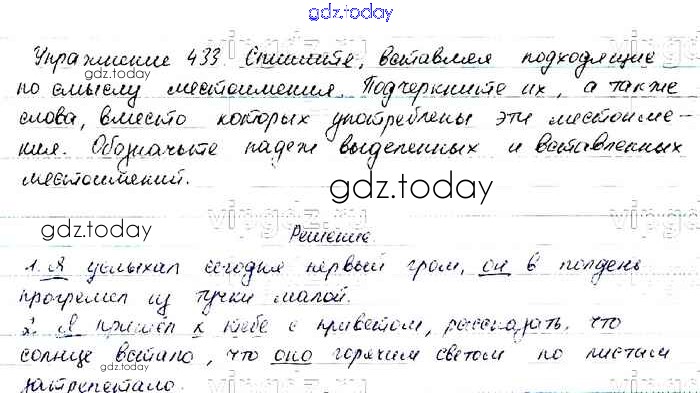 gdz.today
Упражнение 433 Спишите, вставляя подходящие
gdz.today
по смыслу местоимения. Подчеркните их, а также
слова, вместо которых употреблены эти местоиме-
ния. Обозначьте падеж выделенных и вставленных
местоимений.
gdz.today
gdz.today
Решение
1. Я услыхал сегодня первый гром, он в полдень
прогремел из тучки малой.
2. Я пришел к тебе с приветом, рассказать, что
солнце встало, что оно горячим светом по листам
затрепетало.
gdz.today
gdz.today